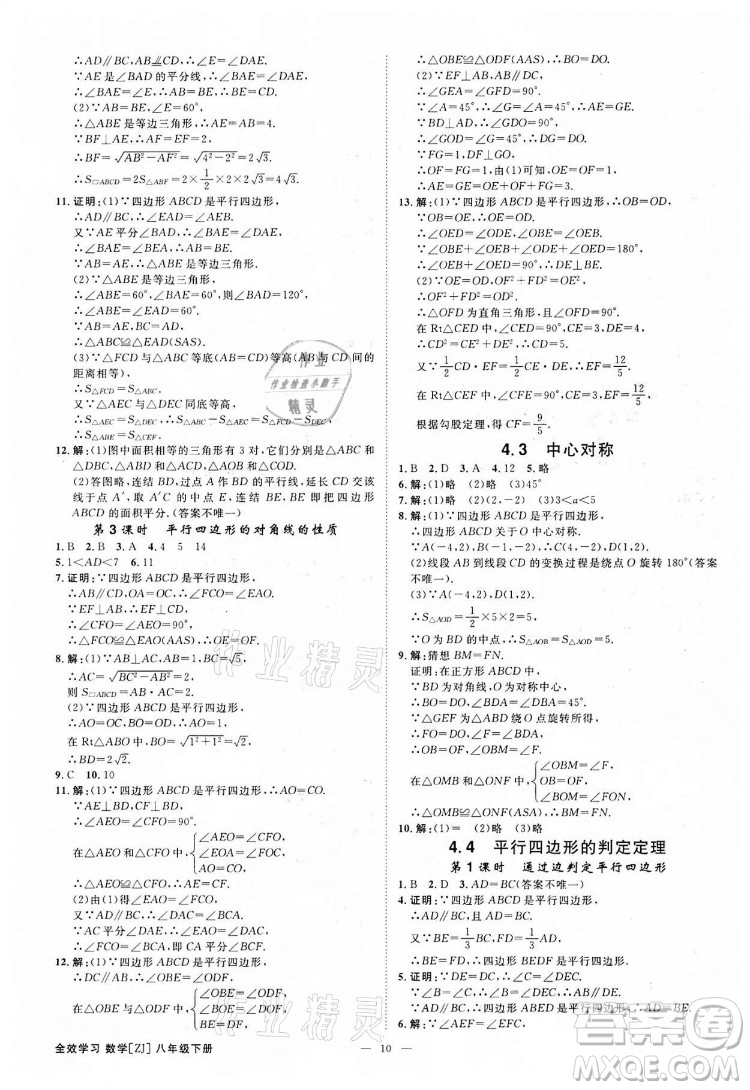 ∴AD∥BC,AB=CD,∴∠BEA=∠DAE.
∵AE是∠BAD的平分线,
∴∠BAE=∠EAD,∴∠BAE=∠BEA.
(2)∵∠BAE=∠E=60°,
∴△ABE是等边三角形,∴AB=BE=AE=4.
∵BF⊥AE,∴AF=EF=2.
∴BF=√(AB²-AF²)=√(4²-2²)=2√3,
∴S▱ABCD=2S△ABF=2×1/2×2×2√3=4√3.
11.证明:(1)∵四边形ABCD是平行四边形,
∴AD∥BC,∴∠DAE=∠AEB.
又∵AE平分∠BAD,∴∠BAE=∠DAE,
∴∠BAE=∠AEB,∴AB=BE.
∵AB=AE,∴△ABE是等边三角形.
(2)∵∠ABE=60°,∠BAE=60°,
∴∠BAE=∠DAE=60°,∴∠BAD=120°,
∴∠ABE=∠DAE.
∴△ABC≌△EAD(SAS).
(3)∵△FCD与△ABC等底等高(AB与CD间的
距离相等),
∴S△FCD=S△ABC.
又∵△AEC与△DEC同底等高,
∴S△AEC=S△DEC,∴S△ABE=S△CEF.
12.解:(1)图中面积相等的三角形有3对,它们分别是△ABC和
△DBC、△ABD和△ACD、△AOB和△DOC.
(2)答图略,连结BD,过点A作BD的平行线,延长CD交平行
线于点A′,取A′C的中点E,连结BE,则BE把四边形
ABCD的面积平分.(答案不唯一)
第3课时 平行四边形的对角线的性质
1.B 2.B 3.A 4.4 5 14
5.1<AD<7 6.11
7.证明:∵四边形ABCD是平行四边形,
∴AB∥CD,OA=OC,∴∠BAC=∠FCO.
又∵BE⊥AB,EF⊥CD,∴∠AEO=∠CFO=90°,
∴△AEO≌△CFO(AAS),∴OE=OF.
8.解:(1)∵AB⊥AC,AB=1,BC=√5,
∴AC=√(BC²-AB²)=2.
则S▱ABCD=AB·AC=2.
(2)∵四边形ABCD是平行四边形,
∴AO=CO,BO=DO,∴AO=1.
在Rt△ABO中,BO=√(1²+1²)=√2,
∴BD=2√2.
9.C 10.10
11.解:(1)∵四边形ABCD是平行四边形,∴AO=CO.
∵AE⊥BD,CF⊥BD,
∴∠AEO=∠CFO=90°.
在△AEO和△CFO中,{∠AEO=∠CFO,
∠AOE=∠COF,
AO=CO,
∴△AEO≌△CFO(AAS),∴AE=CF.
(2)由(1)得OE=OF.
又∵AD∥BC,∴∠DAC=∠ACB.
∵AC平分∠DAE,∴∠DAC=∠EAC,
∴∠EAC=∠ACB,∴AE=CE.
12.解:(1)∵四边形ABCD是平行四边形,
∴AB∥DC,∴∠OBE=∠ODF.
在△OBE与△ODF中,{∠OBE=∠ODF,
∠BOE=∠DOF,
OE=OF,
∴△OBE≌△ODF(AAS),∴BO=DO.
(2)∵EF⊥AB,AB∥DC,
∴∠GEA=∠GFD=90°.
∵∠A=45°,∴∠G=∠A=45°,∴AE=GE.
∵BD⊥AD,∴∠ADB=∠GDO=90°,
∴∠GOD=∠G=45°,∴DG=DO,
∴OF=FG=1.由(1)可知,OE=OF=1,
∴AE=GE=OE+OF+FG=3.
13.解:(1)∵四边形ABCD是平行四边形,∴OB=OD.
∵OB=OE,∴OE=OD,
∴∠OED=∠ODE,∠OBE=∠OEB.
∵∠OBE+∠OEB+∠OED+∠ODE=180°,
∴∠OEB+∠OED=90°,∴DE⊥BE.
(2)∵OF²+FD²=OE²,OE=OD,
∴OF²+FD²=OD²,
∴△OFD为直角三角形,且∠OFD=90°.
在Rt△CED中,∠CED=90°,CE=3,DE=4,
∴CD²=CE²+DE²,∴CD=5.
又∵1/2CD·EF=1/2CE·DE,∴EF=12/5.
在Rt△CEF中,∠CFE=90°,CE=3,EF=12/5,
根据勾股定理,得CF=9/5.
4.3 中心对称
1.B 2.D 3.A 4.12 5.略
6.解:(1)略 (2)略 (3)45°
7.解:(1)略 (2)略 (3)1<a<5
8.解:(1)∵四边形ABCD是平行四边形,
∴四边形ABCD关于O中心对称.
∵A(-4,2),B(-1,-2),∴C(4,-2),D(1,2).
(2)线段AB到线段CD的变换过程是绕点O旋转180°(答案
不唯一).
(3)∵A(-4,2),D(1,2),∴AD=5,
∴S△AOD=1/2×5×2=5.
∵O为BD的中点,∴S△AOB=S△AOD=5.
9.解:猜想BM=FN.
证明:在正方形ABCD中,
∵BD为对角线,O为对称中心,
∴BO=DO,∠BDA=∠DBA=45°.
∵△GEF为△ABD绕O点旋转所得,
∴OB=OF,∠F=∠BDA,
∴∠OBM=∠OFN.
在△OMB和△ONF中,{∠OBM=∠F,
OB=OF,
∠BOM=∠FON,
∴△OMB≌△ONF(ASA),∴BM=FN.
10.解:(1)= (2)略 (3)略
4.4 平行四边形的判定定理
第1课时 通过边判定平行四边形
1.B 2.D 3.AD=BC(答案不唯一)
4.证明:∵四边形ABCD是平行四边形,
∴AD∥BC,AD=BC.
又∵BE=1/3BC,FD=1/3AD,
∴BE=FD,∴四边形BEDF是平行四边形.
5.证明:∵DE=DC,∴∠DEC=∠C.
∵∠B=∠C,∴∠B=∠DEC,
∴AB∥DE.
6.解:(1)∵四边形ABCD是平行四边形,
全效学习 数学[ZJ] 八年级下册
— 10 —
作业精灵
作业检查小助手
答案圈